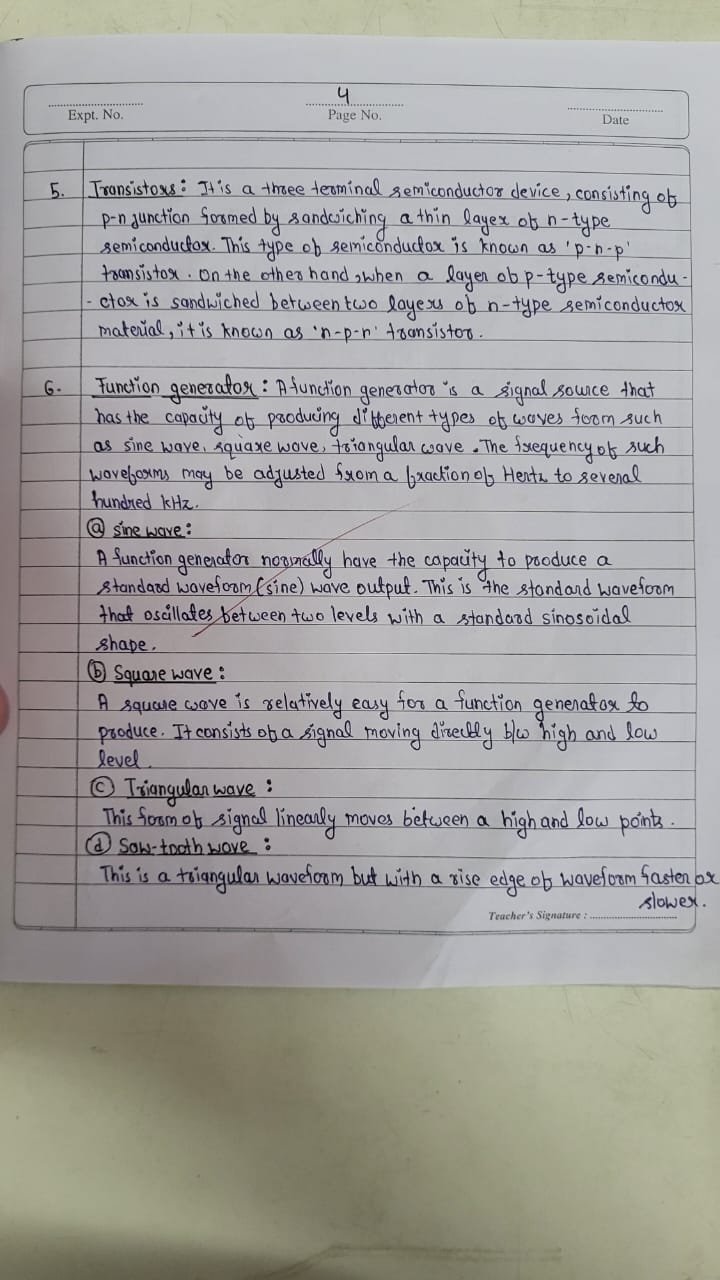 4
Expt. No.
Page No.
Date
5. Transistors: It is a three terminal semiconductor device, consisting of
p-n junction formed by sandwiching a thin layer of n-type
semiconductor. This type of semiconductor is known as 'p-n-p'
transistor. On the other hand, when a layer of p-type semicondu-
-ctor is sandwiched between two layers of n-type semiconductor
material, it is known as 'n-p-n' transistor.
6. Function generator: A function generator is a signal source that
has the capacity of producing different types of waves form such
as sine wave, square wave, triangular wave. The frequency of such
waveforms may be adjusted from a fraction of Hertz to several
hundred kHz.
ⓐ sine wave:
A function generator normally have the capacity to produce a
standard waveform (sine) wave output. This is the standard waveform
that oscillates between two levels with a standard sinosoidal
shape.
ⓑ Square wave:
A square wave is relatively easy for a function generator to
produce. It consists of a signal moving directly b/w high and low
level.
ⓒ Triangular wave:
This form of signal linearly moves between a high and low points.
ⓓ Saw-tooth wave:
This is a triangular waveform but with a rise edge of waveform faster or
slower.
Teacher's Signature :